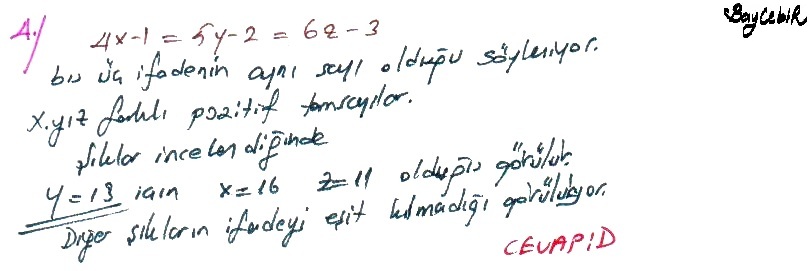 Baycebir
A./ 4x-1 = 5y-2 = 6z-3
bu üç ifadenin aynı sayı olduğu söyleniyor.
x.y.z farklı pozitif tamsayılar.
şıklar incelendiğinde
y=13 için x=16 z=11 olduğu görülür.
Diğer şıkların ifadeyi eşit kılmadığı görülüyor.
CEVAP:D